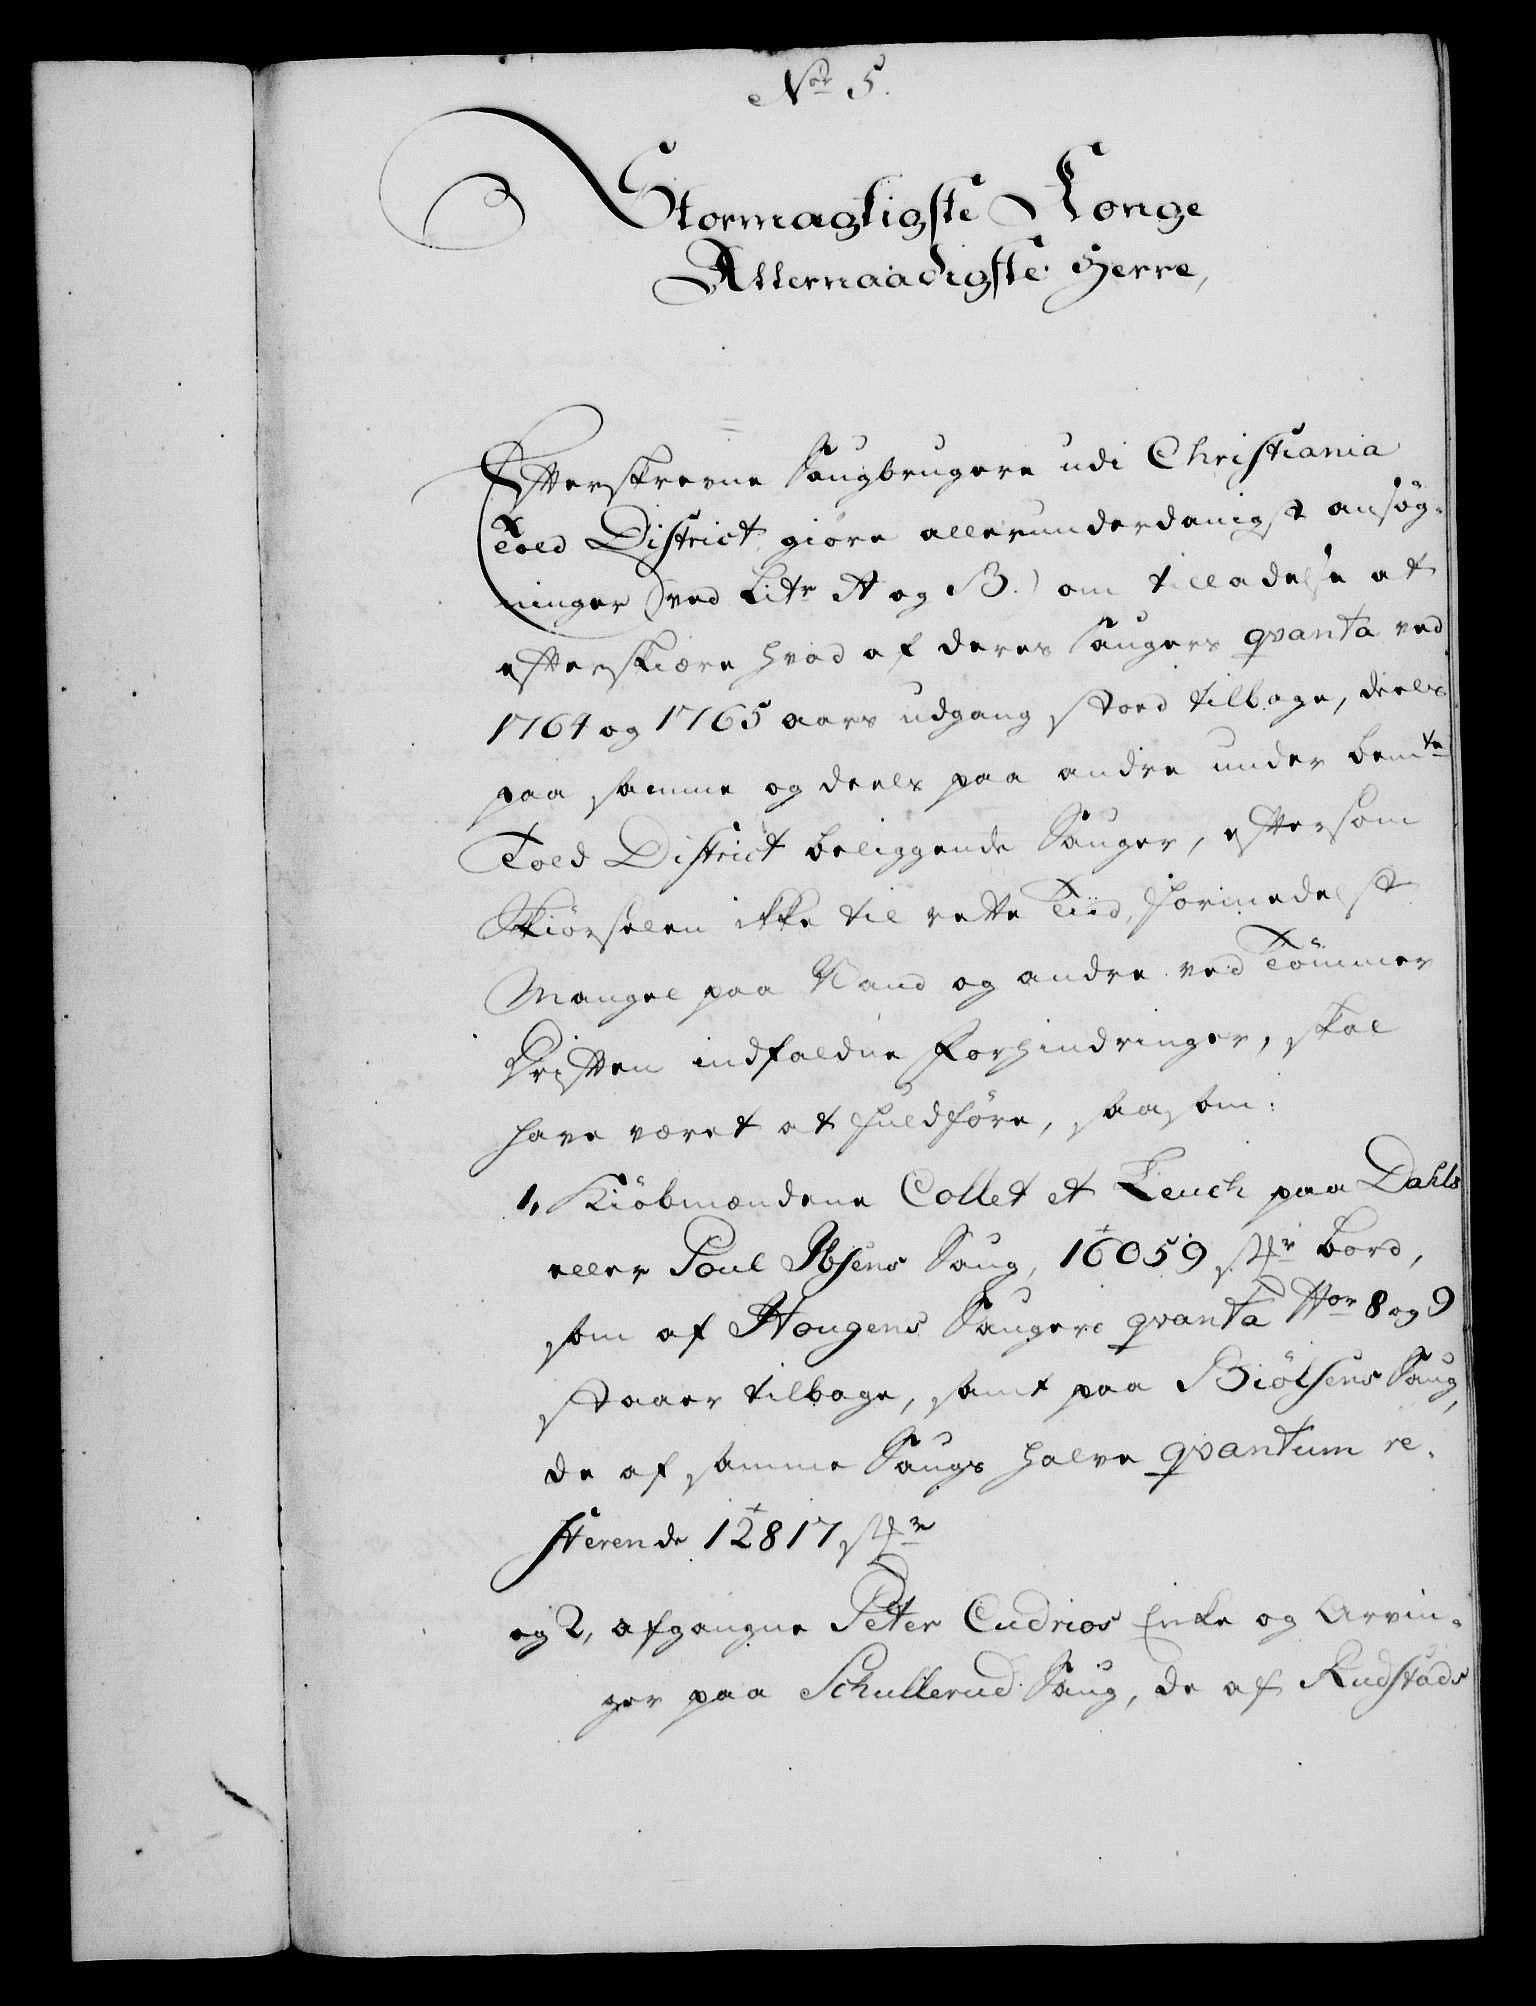 Nor 5.
Stormægtigste Konge
Allernaadigste Herre,
Efterskrevne Saugbrugere udi Christiania
Told District giöre allerunderdanigst ansøg-
ninger (ved Litr A og B.) om tilladelse at
efterskiære hvad af deres Saugers qvanta ved
1764 og 1765 aars udgang stoed tilbage, deels
paa samme og deels paa andre under bemte
Told District beliggende Sauger, eftersom
Skiörselen ikke til rette Tiid, formedelst
Mangel paa Vand og andre ved Tömmer
Driften indfaldne Forhindringer, skal
have været at fuldföre, saasom:
1, Kiöbmændene Collet et Leuch paa Dahls
eller Poul Ibsens Saug, 16059 stkr bord,
som af Hougens Saugers qvanta Nor 8 og 9
staaer tilbage, samt paa Biölsens Saug,
de af samme Saugs halve qvantum re-
sterende 12817 stkr
og 2, afgangne Peter Cudrios Enke og Arvin-
ger paa Schullerud Saug, de af Rudstads